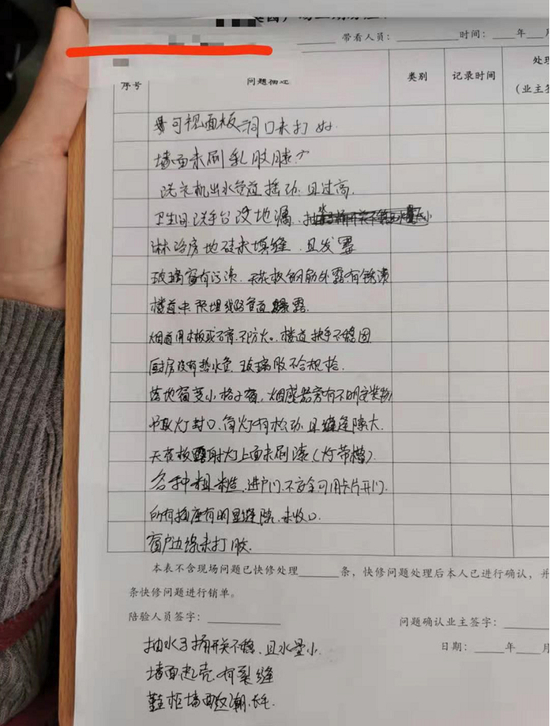 带看人员：　时间：　年　月
序号　问题描述　类别　记录时间　处理
（业主签
可视面板洞口未打好
墙面未刷乳胶漆
洗衣机出水管道松动且过高
卫生间洗手台没地漏
淋浴房地砖未填缝，且发霉
玻璃窗有污渍，天花板钢筋外露有锈渍
楼道中预埋线路管道爆露
烟道用木板或石膏，不防火。楼道扶手不稳固
厨房没有热水管，玻璃胶不合规格
落地窗变小格子窗，烟感器旁有不明安装物
吊顶灯封口、筒灯有松动且缝隙大
天花板射灯上面未刷漆（灯带槽）
各种粗糙，进户门不安全可用卡片开门
所有插座有明显缝隙，未收口
窗户边缘未打胶
本表不含现场问题已快修处理　条，快修问题处理后本人已进行确认，并
条快修问题进行销单。
陪验人员签字：　问题确认业主签字：
日期：　年　月
抽水马桶开关不稳，且水量小
墙面起壳有裂缝
鞋柜墙面返潮、长毛